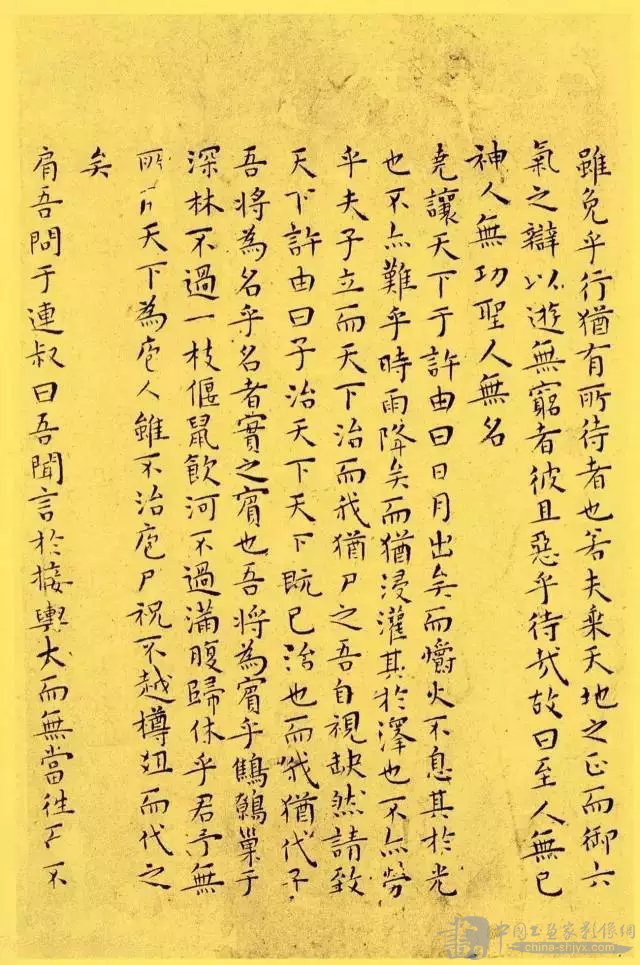 雖免乎行猶有所待者也若夫乘天地之正而御六
氣之辯以遊無窮者彼且惡乎待哉故曰至人無己
神人無功聖人無名
堯讓天下于許由曰日月出矣而爝火不息其於光
也不亦難乎時雨降矣而猶浸灌其於澤也不亦勞
乎夫子立而天下治而我猶尸之吾自視缺然請致
天下許由曰子治天下天下既已治也而我猶代子
吾將為名乎名者實之賓也吾將為賓乎鷦鷯巢于
深林不過一枝偃鼠飲河不過滿腹歸休乎君予無
所 天下為庖人雖不治庖尸祝不越樽俎而代之
矣
肩吾問于連叔曰吾聞言於接輿大而無當往 不
中国书画家影像網
china-shjyx.com